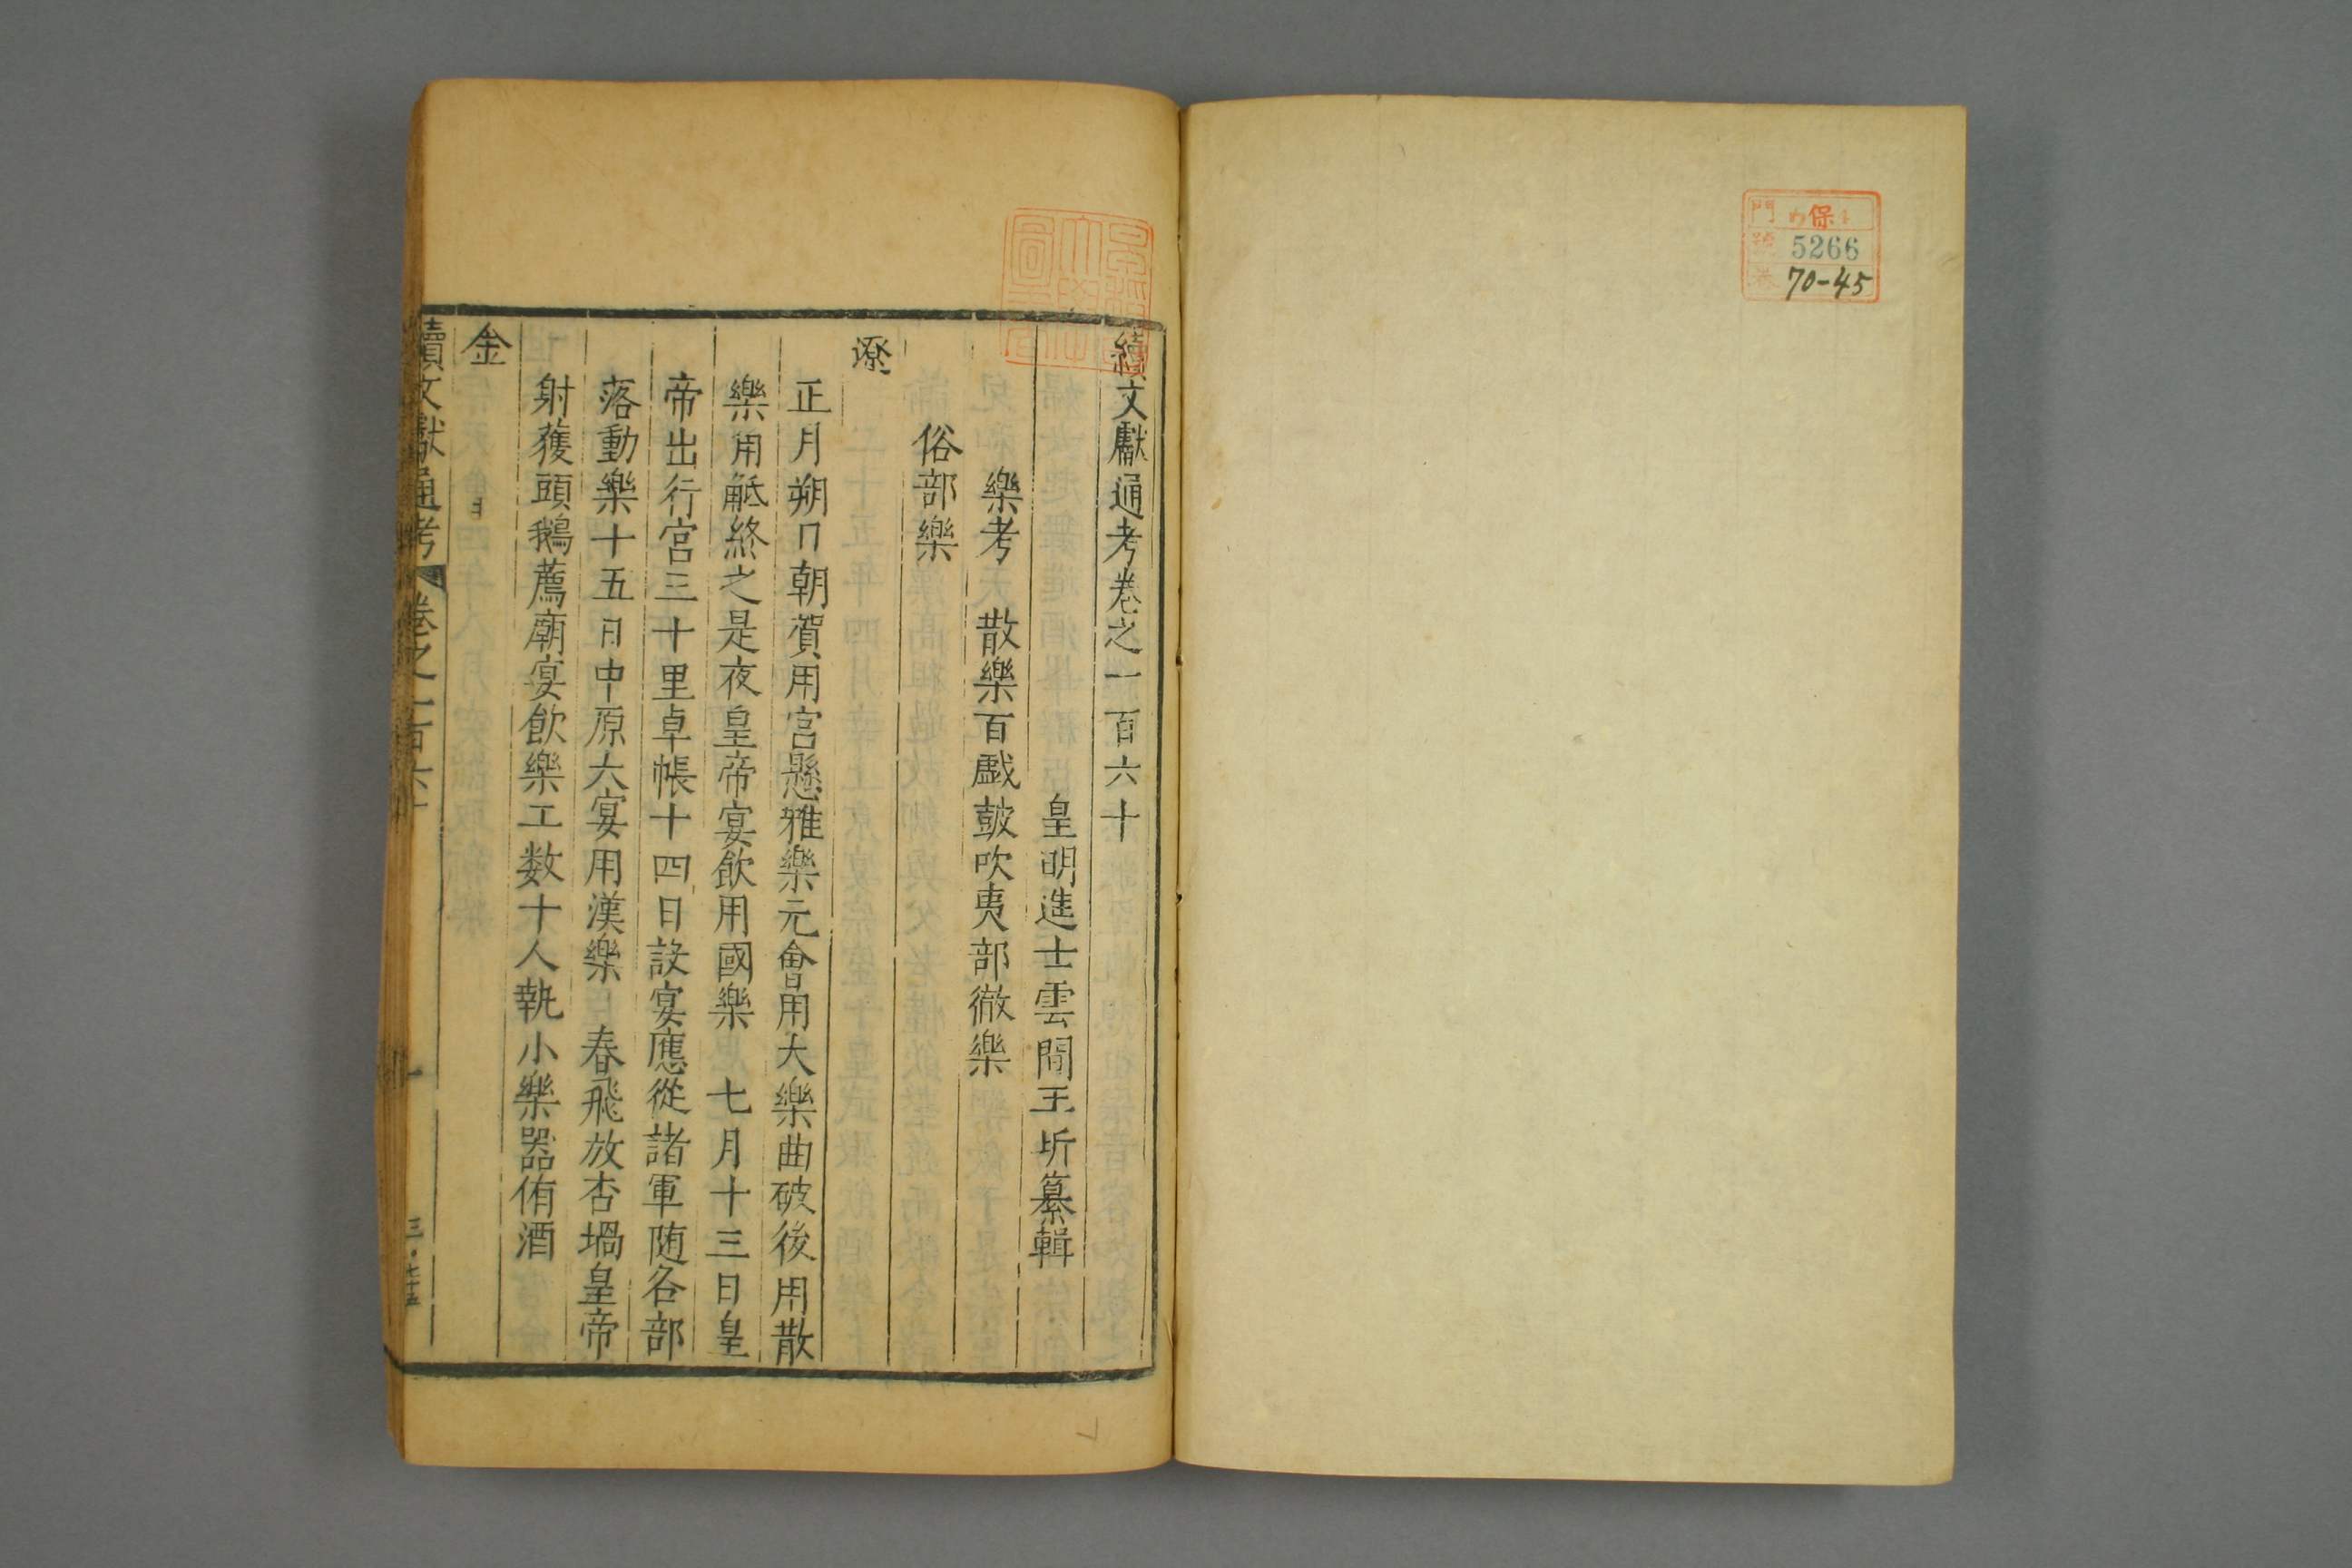 門 保
號 5266
巻 70-45
續文獻通考卷之一百六十
皇明進士雲間王圻纂輯
樂考 散樂百戯鼓吹夷部徹樂
俗部樂
遼
正月朔日朝賀用宮懸雅樂元會用大樂曲破後用散
樂用觝終之是夜皇帝宴飲用國樂 七月十三日皇
帝出行宮三十里卓帳十四日設宴應從諸軍随各部
落動樂十五日中原大宴用漢樂 春飛放杏堝皇帝
射獲頭鵝薦廟宴飲樂工数十人執小樂器侑酒
金
續文獻通考 卷之一百六十 一 三·七十五